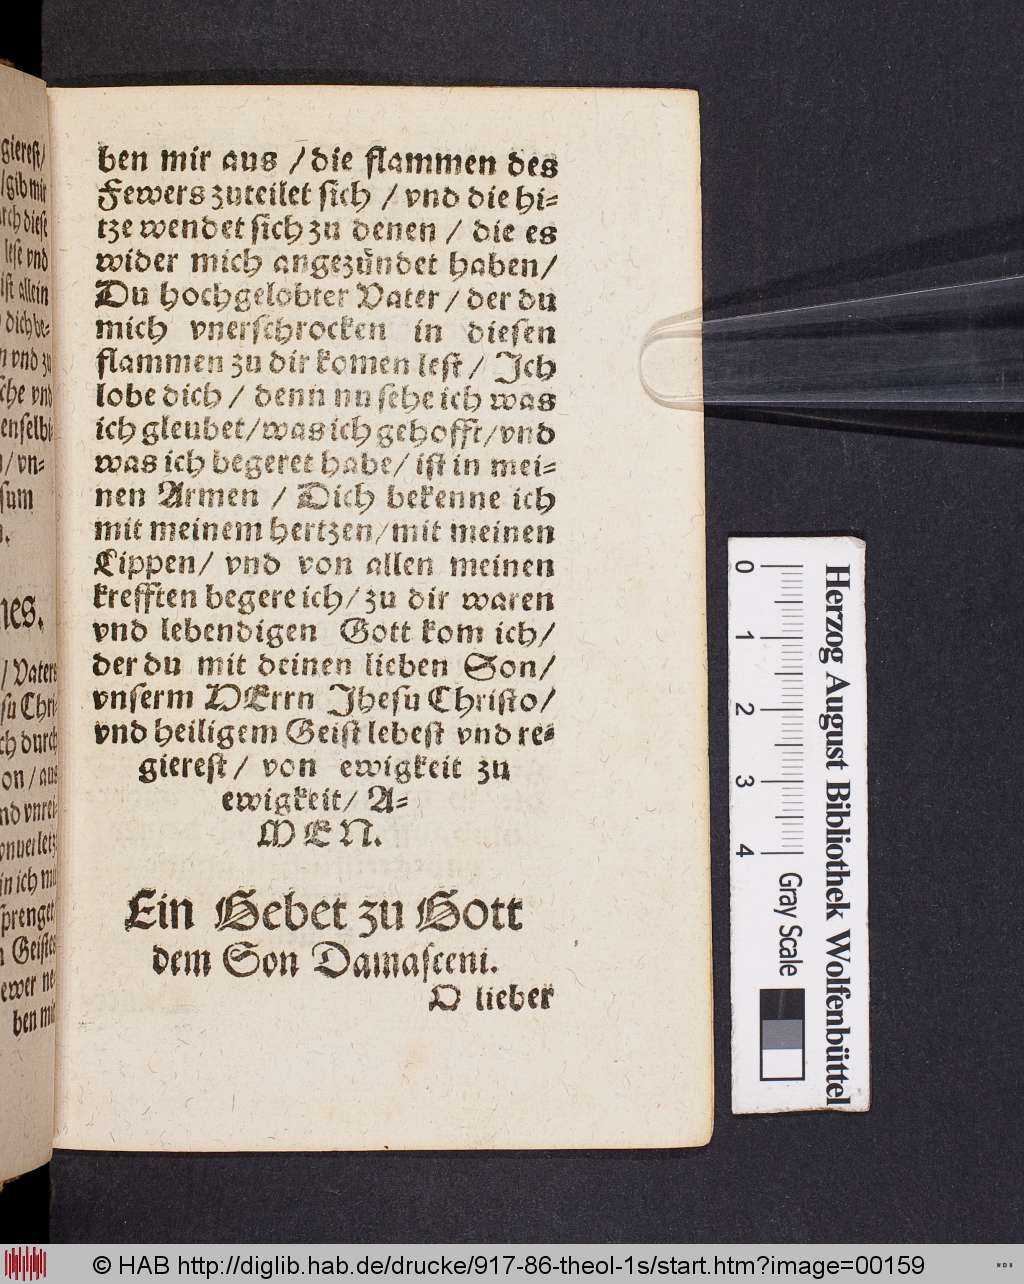 gierest/
/gib mir
rch diese
lese vnd
ist allein
dich be-
n vnd zu
sche vnd
enselbi
/vn-
sum
nes.
/ Vaters
su Chri-
ch durch
on / aus
nd vnrei-
in ich mi
sprenget
Geistes
ewer ne-
ben mir
ben mir aus / die flammen des
Fewers zuteilet sich / vnd die hi-
tze wendet sich zu denen / die es
wider mich angezündet haben/
Du hochgelobter Vater / der du
mich vnerschrocken in diesen
flammen zu dir komen lest / Ich
lobe dich / denn nu sehe ich was
ich gleubet/was ich gehofft/vnd
was ich begeret habe/ ist in mei-
nen Armen / Dich bekenne ich
mit meinem hertzen/mit meinen
Lippen/ vnd von allen meinen
krefften begere ich/ zu dir waren
vnd lebendigen Gott kom ich/
der du mit deinen lieben Son/
vnserm HErrn Jhesu Christo/
vnd heiligem Geist lebest vnd re-
gierest / von ewigkeit zu
ewigkeit/ A-
MEN.
Ein Gebet zu Gott
dem Son Damasceni.
O lieber
0 1 2 3 4 Gray Scale
Herzog August Bibliothek Wolfenbüttel
© HAB http://diglib.hab.de/drucke/917-86-theol-1s/start.htm?image=00159